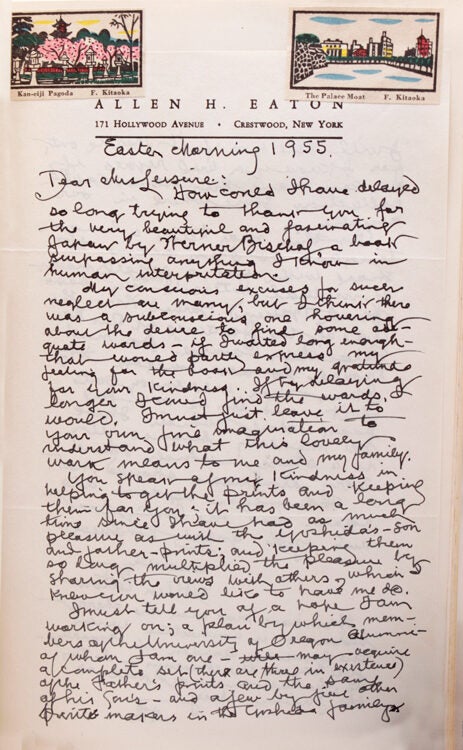 Kan-eiji Pagoda F. Kitaoka
The Palace Moat F. Kitaoka
ALLEN H. EATON
171 HOLLYWOOD AVENUE • CRESTWOOD, NEW YORK
Easter Morning 1955.
Dear Miss
How could I have delayed
so long trying to thank you for
the very beautiful and fascinating
Japan by Werner Bischof a book
surpassing anything I know in
human interpretation.
My conscious excuses for such
neglect are many, but I think there
was a subconscious one hovering
about the desire to find some ad-
quate words - if I waited long enough -
that would partly express my
feeling for the book and my gratitude
for your kindness. If by delaying
longer I could find the words, I
would. I must just leave it to
your own fine imagination to
understand what this lovely
work means to me and my family.
You speak of my kindness in
helping to get the prints and keeping
them for you: it has been a long
time since I have had as much
pleasure as with the Yoshida's - son
and father - prints; and keeping them
so long multiplied the pleasure by
sharing the views with others, which I
knew you would like to have me do.
I must tell you of a hope I am
working on; a plan by which mem-
bers of the University of Oregon Alumni -
of whom I am one - may acquire
a complete set (there are three in existence)
of the Father's prints and the same
of his son's - and a few by five other
print makers in the Yoshida family